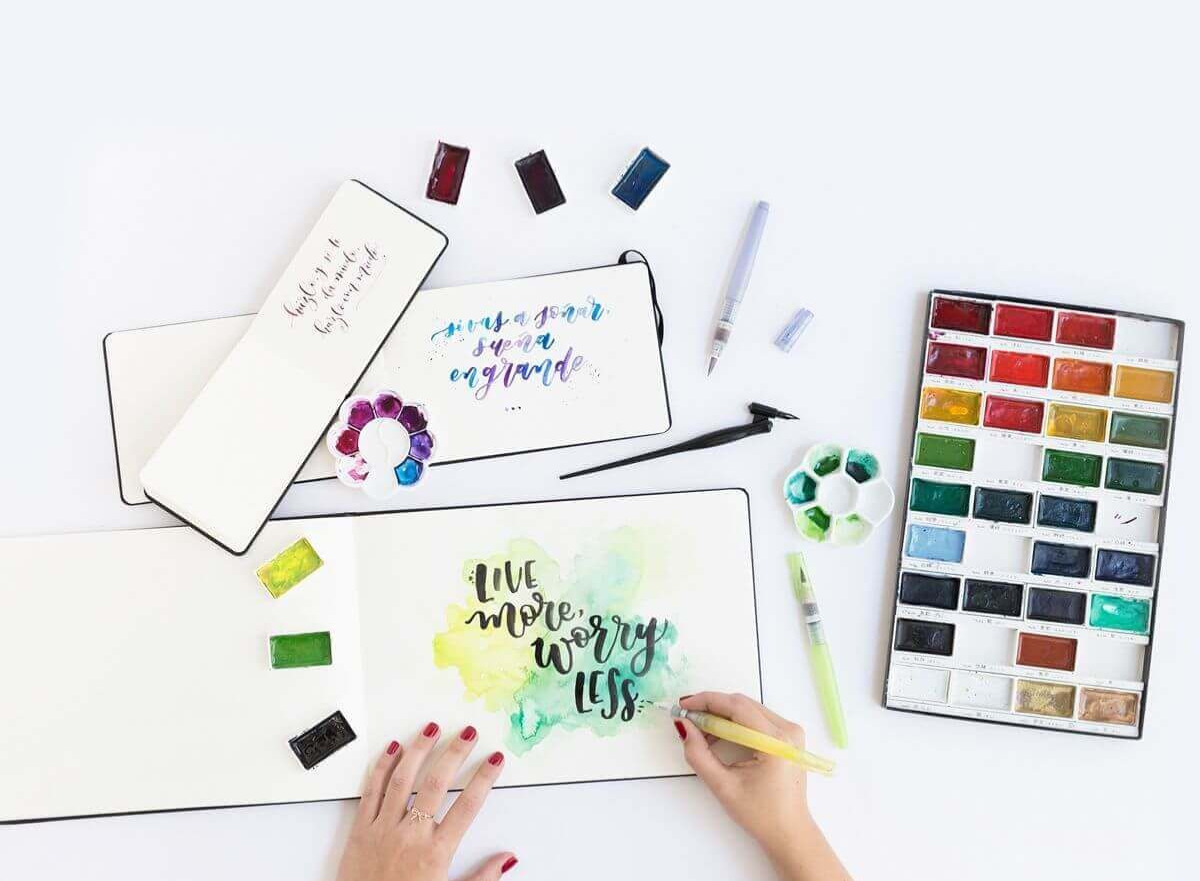 hazlo, y si te
da miedo,
hazlo con miedo.
si vas a soñar,
sueña
en grande
...
LIVE
more,
worry
LESS.